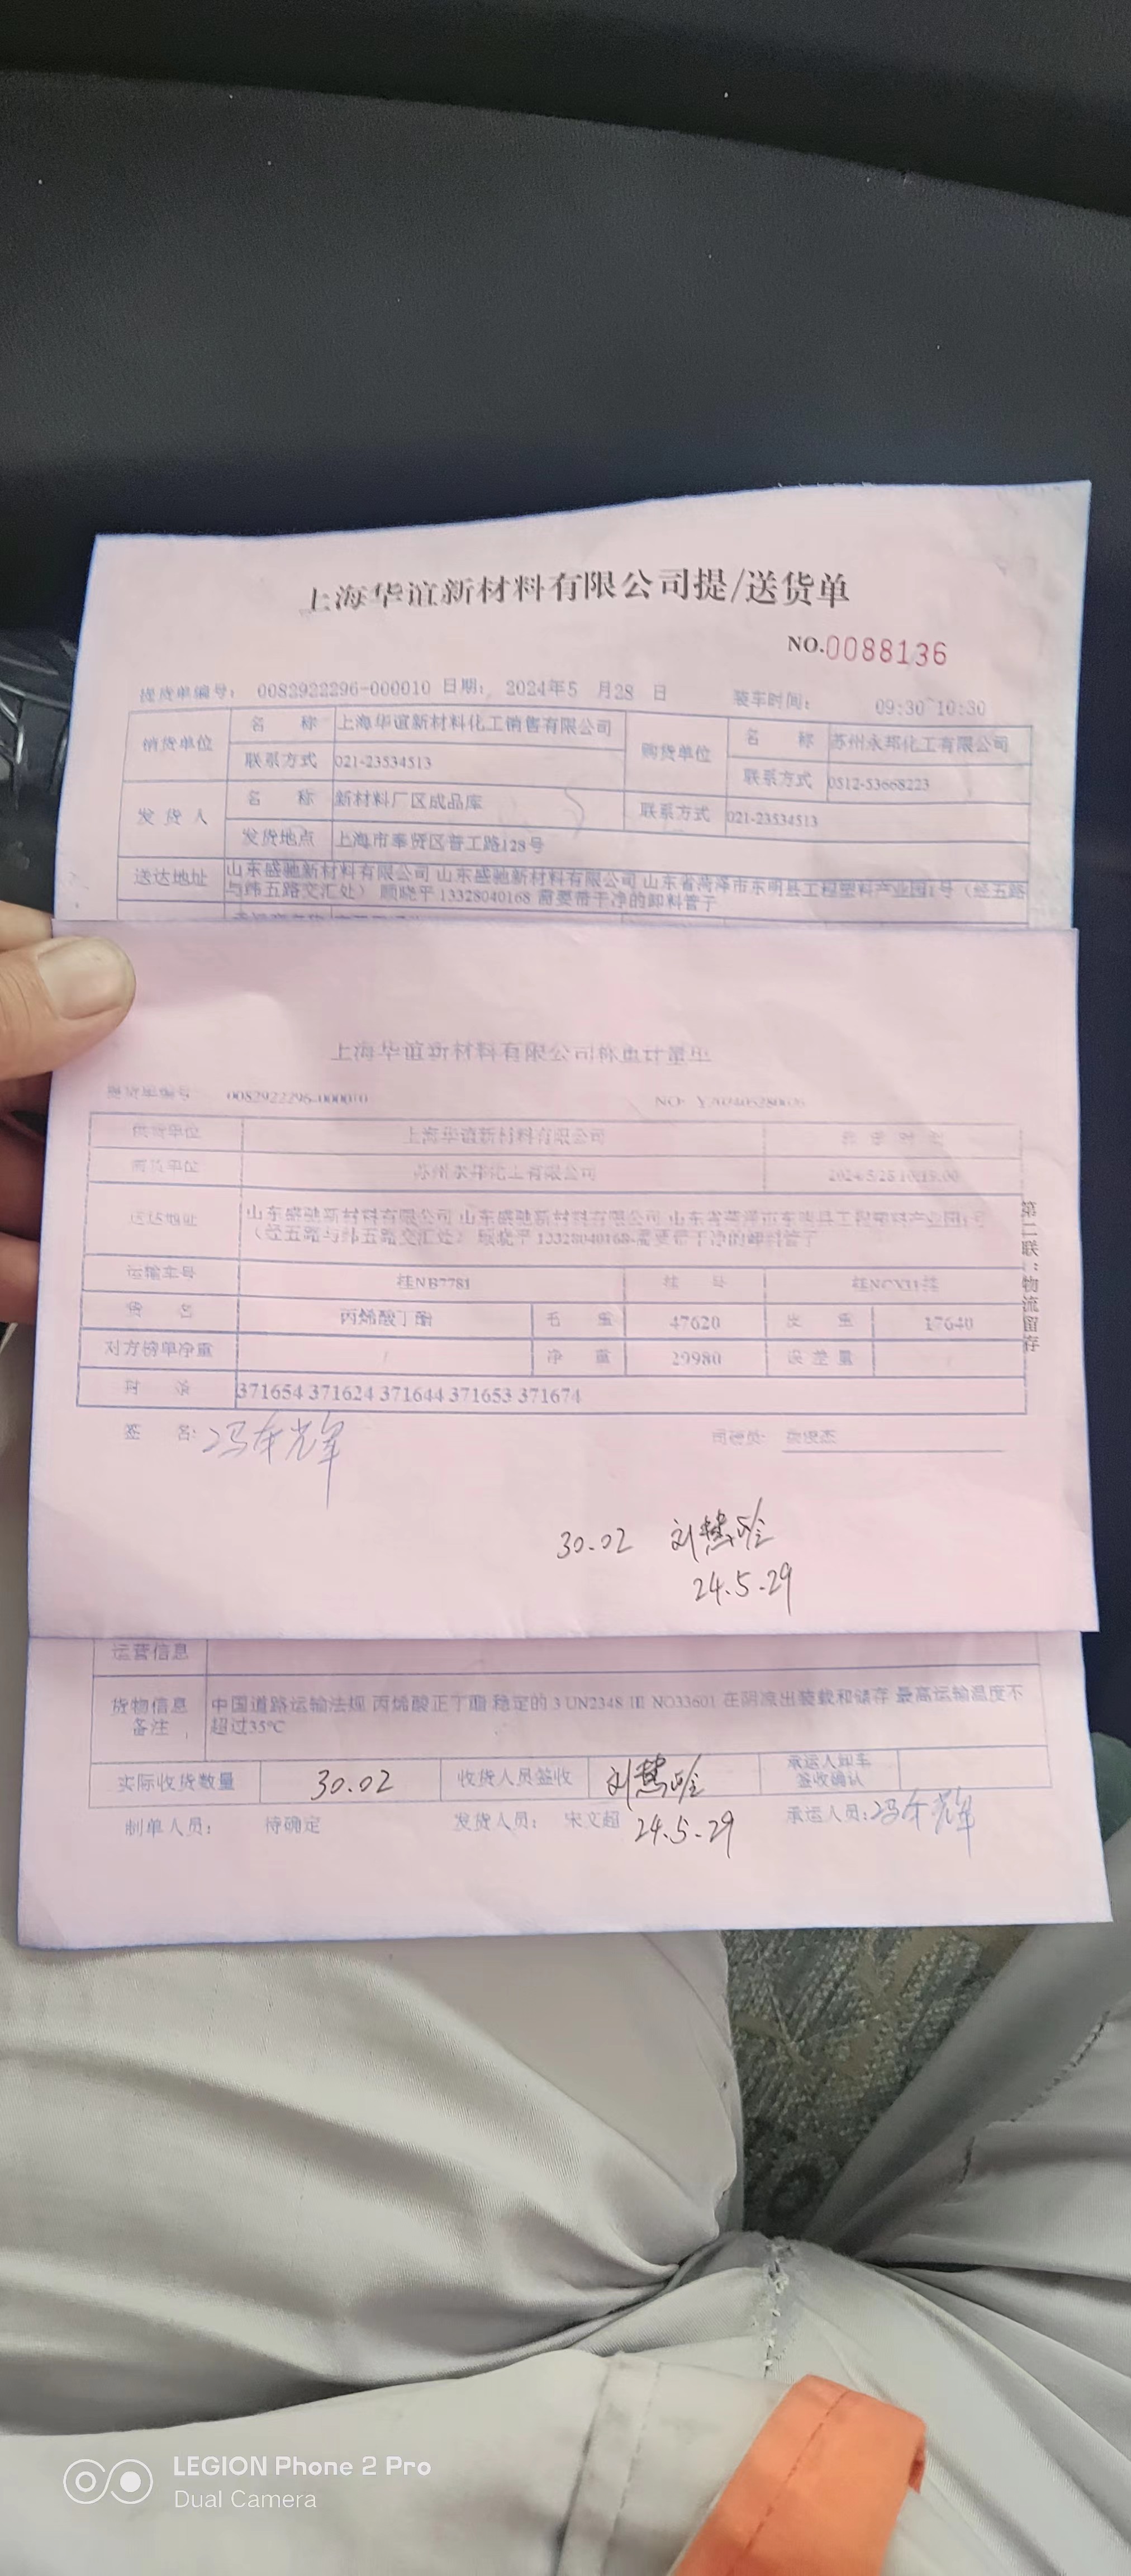 上海华谊新材料有限公司提/送货单
NO.0088136
提货单编号: 0082922296-000010 日期: 2024年5 月28 日 装车时间: 09:30~10:30
销货单位 名 称 上海华谊新材料化工销售有限公司 购货单位 名 称 苏州永邦化工有限公司
联系方式 021-23534513 联系方式 0512-53668223
发 货 人 名 称 新材料厂区成品库 联系方式 021-23534513
发货地点 上海市奉贤区普工路128号
送达地址 山东盛驰新材料有限公司 山东盛驰新材料有限公司 山东省菏泽市东明县工程塑料产业园1号（经五路
与纬五路交汇处） 顾晓平 13328040168 需要带干净的卸料管子
上海华谊新材料有限公司称重计量单
提货单编号 0082922296-000010 NO:
供货单位 上海华谊新材料有限公司
购货单位 苏州永邦化工有限公司
送达地址 山东盛驰新材料有限公司 山东盛驰新材料有限公司 山东省菏泽市东明县工程塑料产业园1号
（经五路与纬五路交汇处） 顾晓平 13328040168 需要带干净的卸料管子
运输车号 桂NB7781 挂 号
货 名 丙烯酸丁酯 毛 重 47620 皮 重 17640
对方磅单净重 / 净 重 29980 误 差 量
封 条 371654 371624 371644 371653 371674
签 名: 冯年光辉 司磅员:
第二联：物流留存
30.02 刘慧玲
24.5.29
运营信息
货物信息 中国道路运输法规 丙烯酸正丁酯 稳定的 3 UN2348 III NO33601 在阴凉出装载和储存 最高运输温度不
备注 超过35℃
实际收货数量 30.02 收货人员签收 刘慧玲 承运人卸车
签收确认
制单人员: 待确定 发货人员: 宋文超 24.5.29 承运人员:
LEGION Phone 2 Pro
Dual Camera